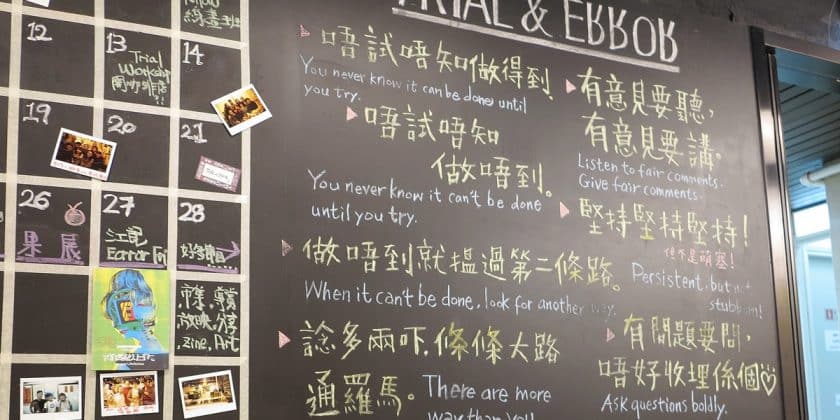 12
13
Trial
Workshop
14
19
20
21
26
果展
27
江記
Error Fri
28
好多節目
放映,分享
zine, Art
TRIAL & ERROR
唔試唔知做得到.
You never know it can be done until
you try.
唔試唔知
做唔到。
You never know it can't be done
until you try.
做唔到就搵過第二條路。
When it can't be done, look for another way.
諗多兩吓.條條大路
通羅馬.
There are more
way than you
有意見要聽,
有意見要講.
Listen to fair comments.
Give fair comments.
堅持堅持堅持!
但不是萌塞!
Persistent, but not
stubborn!
有問題要問,
唔好收埋係個♡
Ask questions boldly.